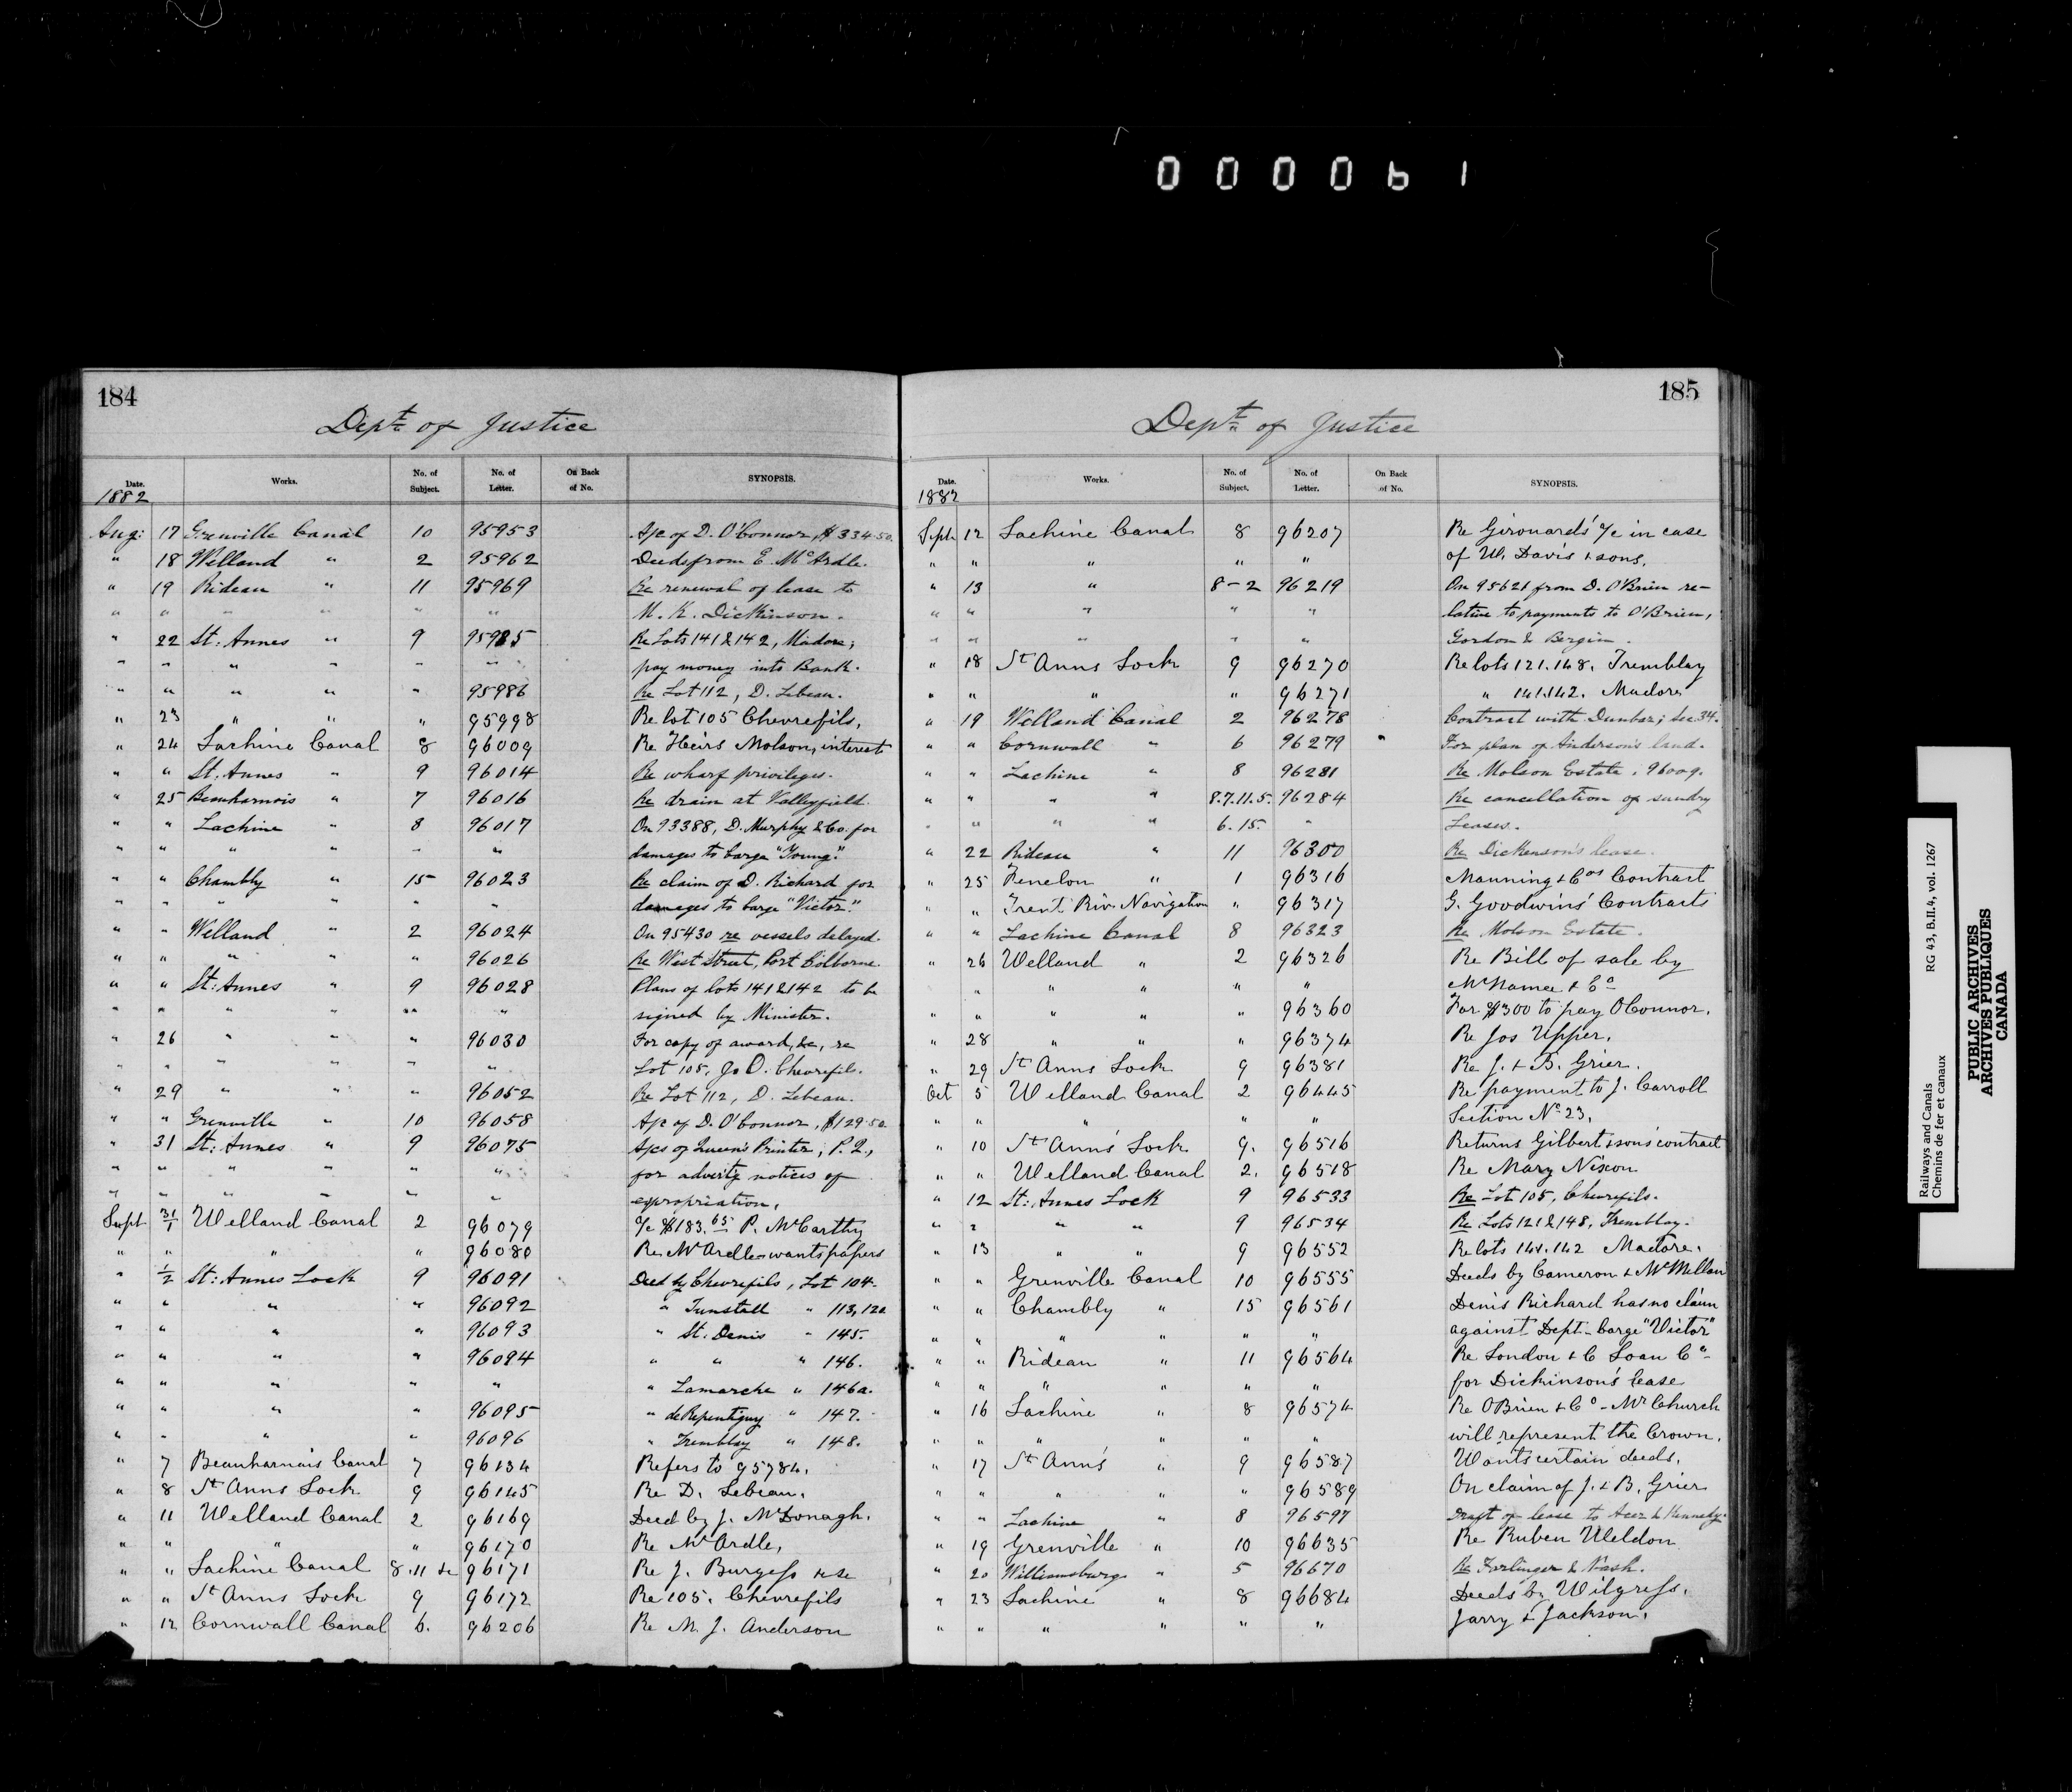 000061
184
Dept. of Justice
Date. Works. No. of Subject. No. of Letter. On Back of No. SYNOPSIS.
1882
Aug: 17 Grenville Canal 10 95953 A/c of D. O'Connor, $334.50.
" 18 Welland " 2 95962 Deeds from E. McArdle.
" 19 Rideau " 11 95969 Re renewal of lease to
" " " " " " M. K. Dickinson.
" 22 St. Annes " 9 95985 Re Lots 141 & 142, Madore;
" " " " " " pay money into Bank.
" " " " " 95986 Re Lot 112, D. Lebeau.
" 23 " " " 95998 Re lot 105 Chevrefils,
" 24 Lachine Canal 8 96009 Re Heirs Molson, interest
" " St. Annes " 9 96014 Re wharf privileges.
" 25 Beauharnois " 7 96016 Re drain at Valleyfield.
" " Lachine " 8 96017 On 93388, D. Murphy & Co. for
" " " " " " damages to barge "Young."
" " Chambly " 15 96023 Re claim of D. Richard for
" " " " " " damages to barge "Victor."
" " Welland " 2 96024 On 95430 re vessels delayed.
" " " " " 96026 Re West Street, Port Colborne.
" " St. Annes " 9 96028 Plans of lots 141 & 142 to be
" " " " " " signed by Minister.
" 26 " " " 96030 For copy of award, &c, re
" " " " " " Lot 105, Jos O. Chevrefils.
" 29 " " " 96052 Re Lot 112, D. Lebeau.
" " Grenville " 10 96058 A/c of D. O'Connor, $129.50.
" 31 St: Annes " 9 96075 A/cs of Queen's Printer, P.Q.,
" " " " " for advertg notices of
" " " " " expropriation.
Sept 31/1 Welland Canal 2 96079 A/c $183.65 P. McCarthy
" " " " 96080 Re McArdle - wants papers
" 1/2 St: Annes Lock 9 96091 Deed by Chevrefils, Lot 104.
" " " " 96092 " Tunstall " 113, 120
" " " " 96093 " St. Denis " 145.
" " " " 96094 " " " 146.
" " " " " " Lamarche " 146a.
" " " " 96095 " de Repentigny " 147.
" " " " 96096 " Tremblay " 148.
" 7 Beauharnais Canal 7 96134 Refers to 95784.
" 8 St Anns Lock 9 96145 Re D. Lebeau.
" 11 Welland Canal 2 96169 Deed by J. McDonagh.
" " " " 96170 Re McArdle,
" " Lachine Canal 8.11 &c 96171 Re J. Burgess &c
" " St Anns Lock 9 96172 Re 105. Chevrefils
" 12 Cornwall Canal 6. 96206 Re M. J. Anderson
185
Dept. of Justice
Date. Works. No. of Subject. No. of Letter. On Back of No. SYNOPSIS.
1882
Sept 12 Lachine Canal 8 96207 Re Girouards' a/c in case
" " " " " of W. Davis & sons.
" 13 " 8-2 96219 On 95621 from D. O'Brien re-
" " " " " lative to payments to O'Brien,
" " " " " Gordon & Bergin.
" 18 St Anns Lock 9 96270 Re lots 121.148. Tremblay
" " " " 96271 " 141.142. Madore
" 19 Welland Canal 2 96278 Contract with Dunbar; Sec. 34.
" " Cornwall " 6 96279 " For plan of Anderson's land.
" " Lachine " 8 96281 Re Molson Estate. 96009.
" " " " 8.7.11.5. 96284 Re cancellation of sundry
" " " " 6.15. " Leases.
" 22 Rideau " 11 96300 Re Dickenson's lease.
" 25 Fenelon " 1 96316 Manning & Cos Contract
" " Trent Riv. Navigation " 96317 G. Goodwins' Contracts
" " Lachine Canal 8 96323 Re Molson Estate.
" 26 Welland " 2 96326 Re Bill of sale by
" " " " " McNamee & Co
" " " " " 96360 For $300 to pay OConnor.
" 28 " " " 96374 Re Jos Upper.
" 29 St Anns Lock 9 96381 Re J. & B. Grier.
Oct 5 Welland Canal 2 96445 Re payment to J. Carroll
" " " " " Section No 23.
" 10 St Ann's Lock 9. 96516 Returns Gilbert & sons' contract
" " Welland Canal 2. 96518 Re Mary Nixon
" 12 St: Annes Lock 9 96533 Re Lot 105, Chevrefils.
" " " " 9 96534 Re Lots 121 & 148, Tremblay.
" 13 " " 9 96552 Re lots 141.142 Madore.
" " Grenville Canal 10 96555 Deeds by Cameron & McMillan
" " Chambly " 15 96561 Denis Richard has no claim
" " " " " " against Dept - barge "Victor"
" " Rideau " 11 96564 Re London & C Loan Co -
" " " " " " for Dickinson's lease
" 16 Lachine " 8 96574 Re OBrien & Co - Mr Church
" " " " " " will represent the Crown.
" 17 St Ann's " 9 96587 Wants certain deeds.
" " " " " 96589 On claim of J. & B. Grier
" " Lachine " 8 96597 Draft of lease to & Kennedy.
" 19 Grenville " 10 96635 Re Ruben Weldon
" 20 Williamsburg " 5 96670 Re Forlinger & Nash.
" 23 Lachine " 8 96684 Deeds by Wilgress,
" " " " " " Jarry & Jackson.
Railways and Canals RG 43, B.II.4, vol. 1267
Chemins de fer et canaux
PUBLIC ARCHIVES
ARCHIVES PUBLIQUES
CANADA